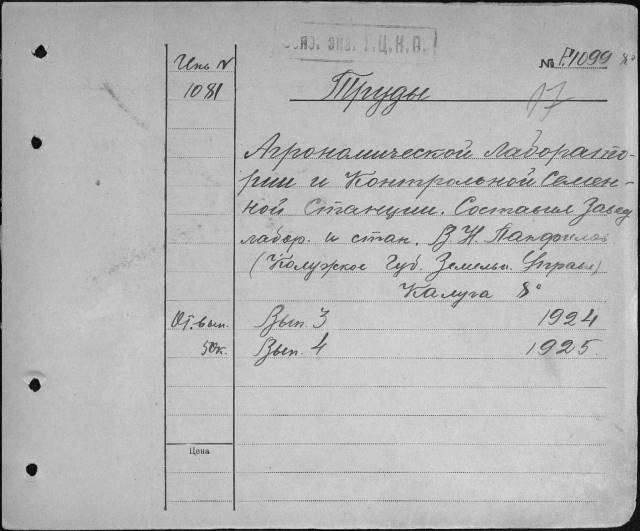 Обяз. экз. Г.Ц.К.П.
№ Г1099 8°
Инв N
1081
Труды
17
Агрономической Лаборато-
рии и Контрольной Семен-
ной Станции. Составил Завед.
лабор. и стан. В. Н. Панфилов
(Калужское Губ. Земельн. Управл)
Калуга 8°
От. вып. Вып. 3 1924
50к. Вып. 4 1925.
Цена